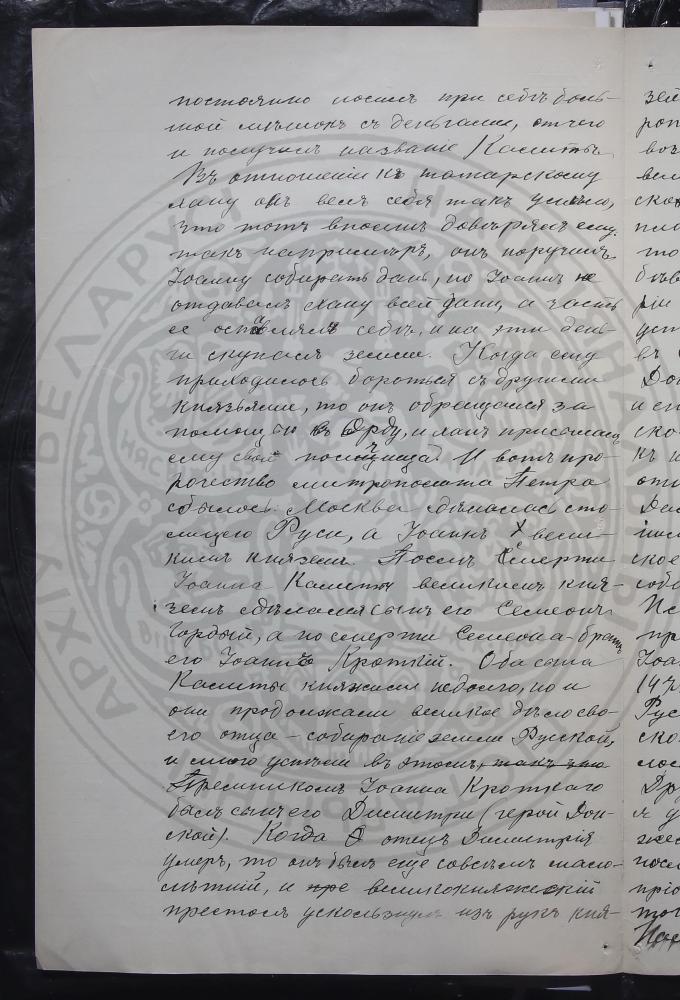 постоянно носилъ при себѣ боль-
шой мѣшокъ съ деньгами, отчего
и получилъ названіе Калиты.
Въ отношеніи къ татарскому
хану онъ велъ себя такъ умѣло,
что тотъ вполнѣ довѣрялъ ему;
такъ напримѣръ, онъ поручилъ
Іоанну собирать дань, но Іоаннъ не
отдавалъ хану всей дани, а часть
ее оставлялъ себѣ, и на эти день-
ги скупалъ земли. Когда ему
приходилось бороться съ другими
князьями, то онъ обращался за
помощью въ Орду, и ханъ присылалъ
ему свои полчища. И вотъ про-
рочество митрополита Петра
сбылось. Москва сдѣлалась сто-
лицею Руси, а Іоаннъ вели-
кимъ княземъ. Послѣ смерти
Іоанна Калиты великимъ кня-
земъ сдѣлался сынъ его Семеонъ
Гордый, а по смерти Семеона - братъ
его Іоаннъ Кроткій. Оба сына
Калиты княжили недолго, но и
они продолжали великое дѣло сво-
его отца - собираніе земли Русской,
и много успѣли въ этомъ, такъ что
Преемникомъ Іоанна Кроткаго
былъ сынъ его Димитрій (герой Дон-
ской). Когда отецъ Димитрія
умеръ, то онъ былъ еще совсѣмъ мало-
лѣтній, и пре великокняжескій
престолъ ускользнулъ изъ рукъ кня-
АРХІЎ БЕЛАРУСІ